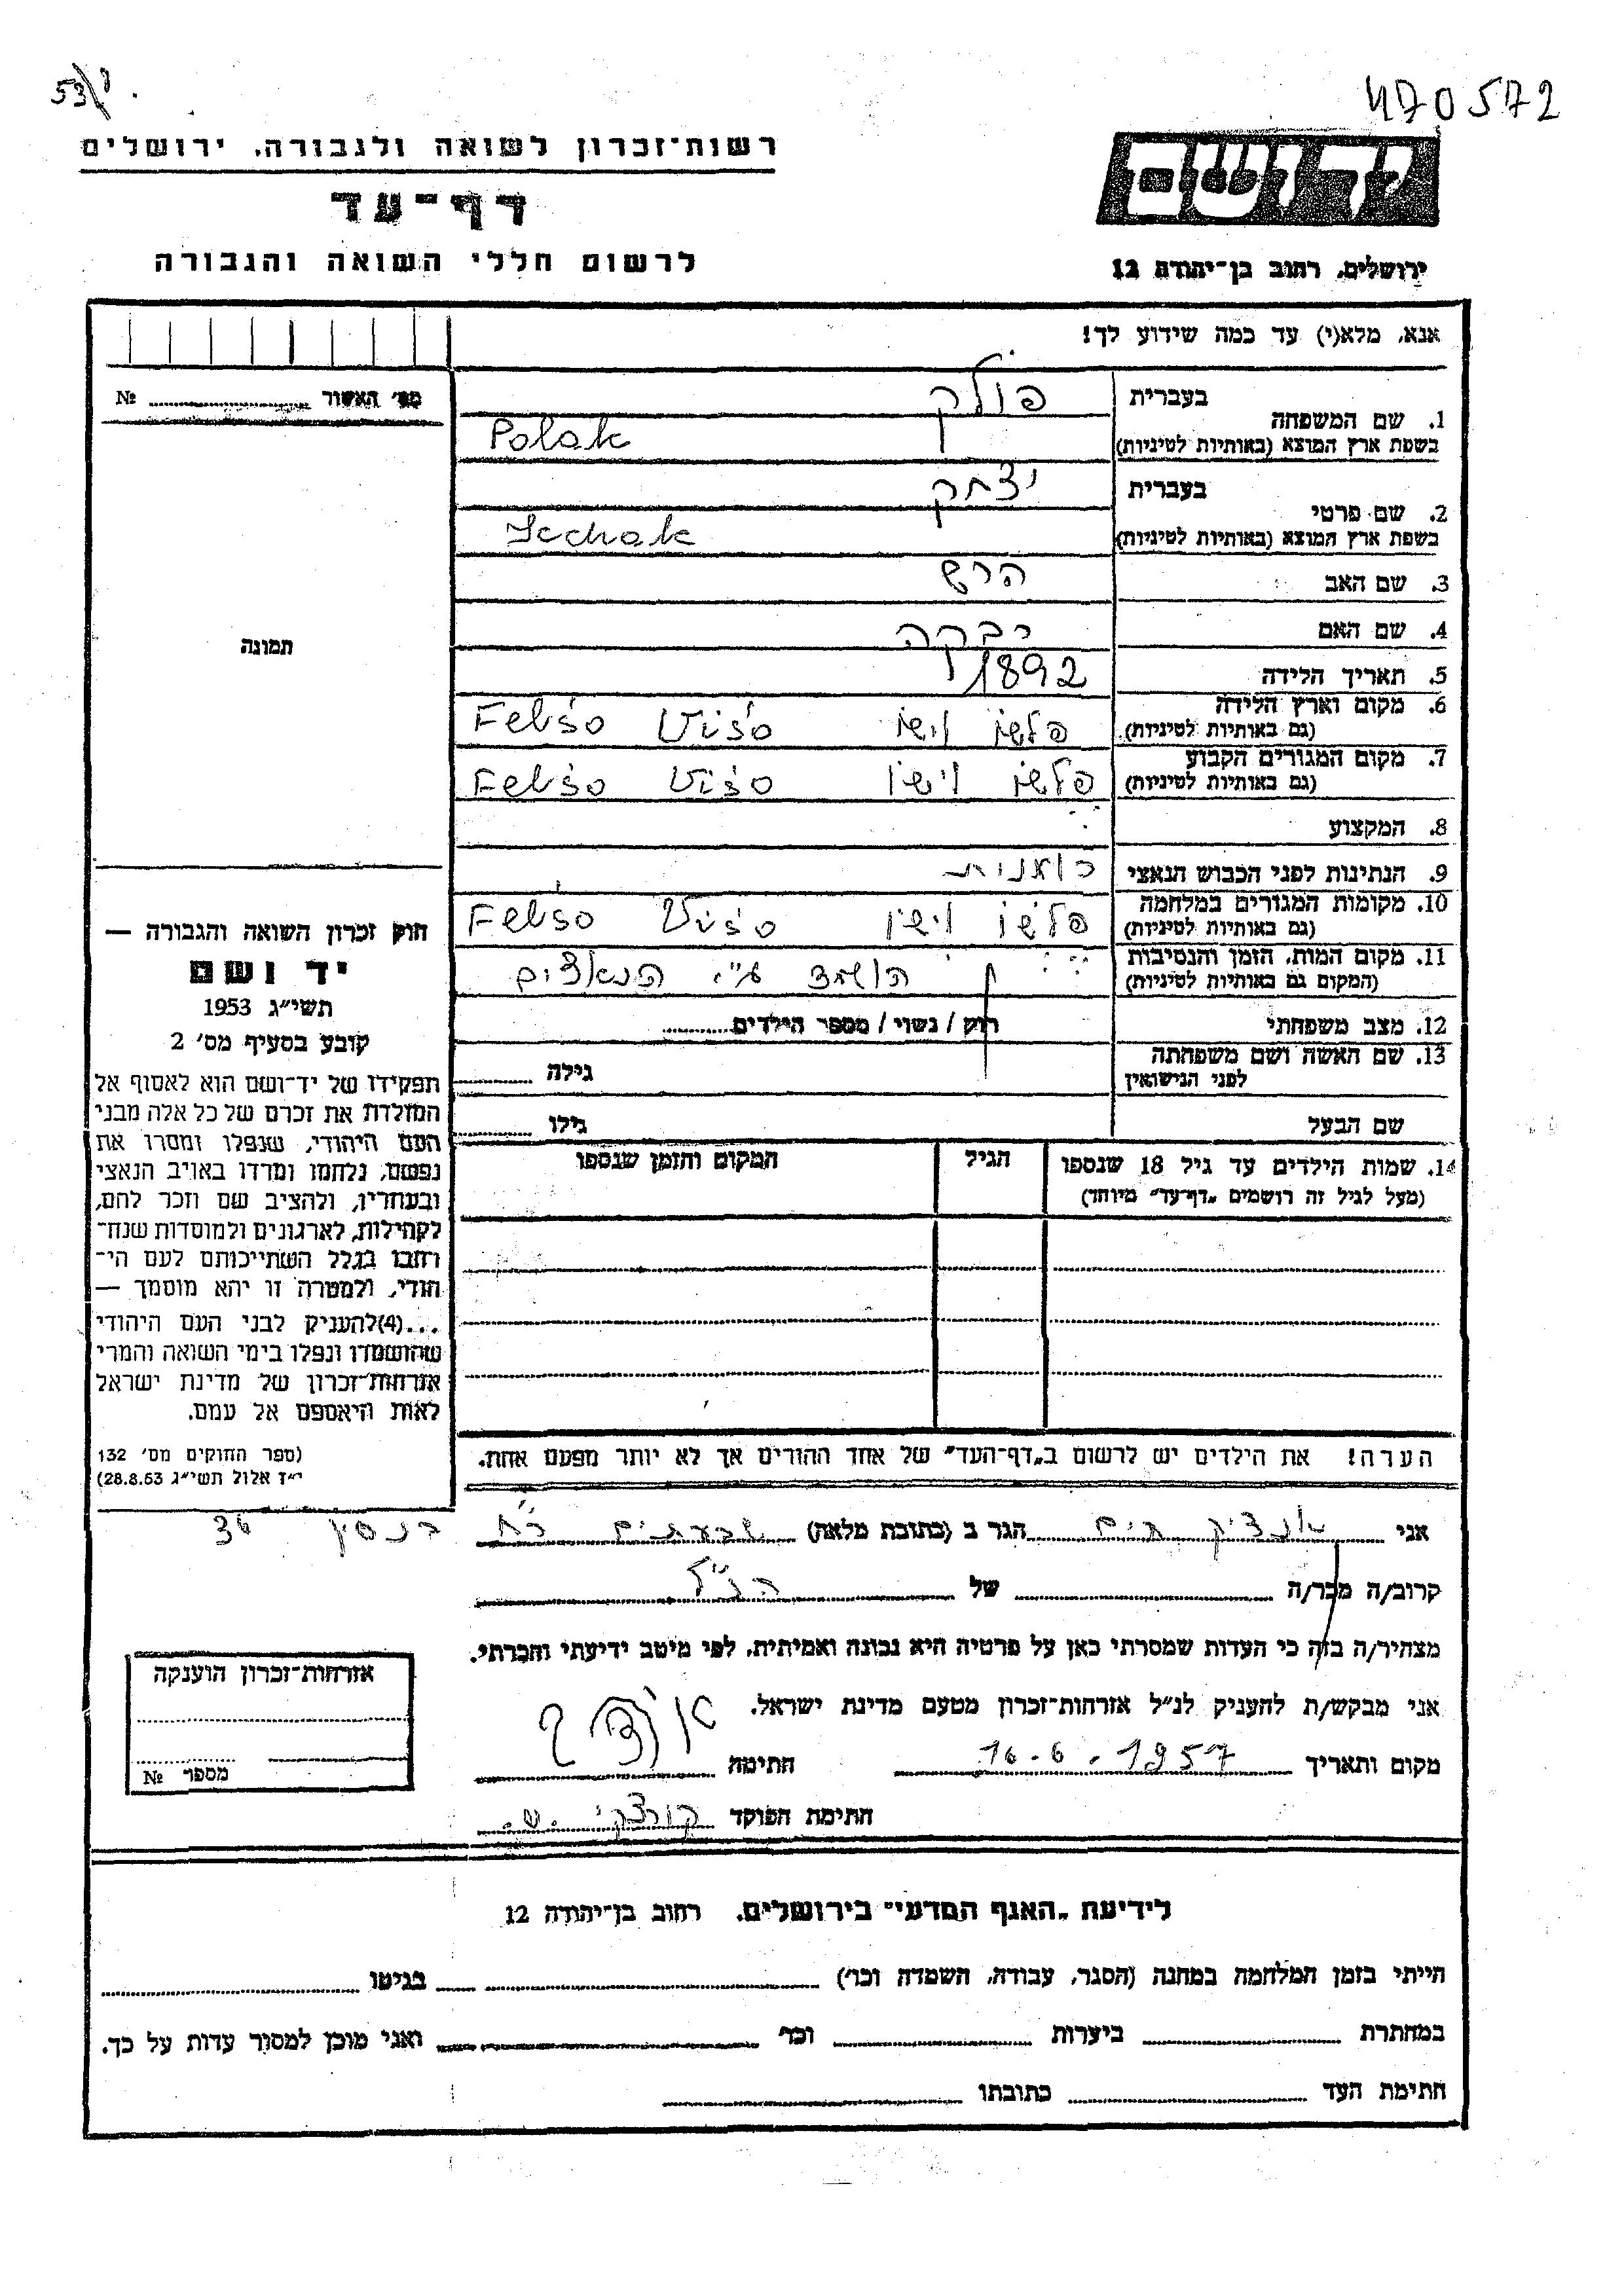 53/ו
470572
רשות־זכרון לשואה ולגבורה, ירושלים
דף־עד
לרשום חללי השואה והגבורה
יד ושם
ירושלים, רחוב בן־יהודה 12
אנא, מלא(י) עד כמה שידוע לך!
מס׳ האשור № 
1. שם המשפחה
בעברית פולק
בשפת ארץ המוצא (באותיות לטיניות) Polak
2. שם פרטי
בעברית יצחק
בשפת ארץ המוצא (באותיות לטיניות) Icchak
3. שם האב הרש
4. שם האם רבקה
5. תאריך הלידה 1892
6. מקום וארץ הלידה
(גם באותיות לטיניות) פלשו וישו Felšo Višo
7. מקום המגורים הקבוע
(גם באותיות לטיניות) פלשו וישו Felšo Višo
8. המקצוע
9. הנתינות לפני הכבוש הנאצי רומנית
10. מקומות המגורים במלחמה
(גם באותיות לטיניות) פלשו וישו Felšo Višo
11. מקום המות, הזמן והנסיבות
(המקום גם באותיות לטיניות) הושמד ע״י הנאצים
12. מצב משפחתי רוק / נשוי / מספר הילדים
13. שם האשה ושם משפחתה
לפני הנישואין גילה
שם הבעל גילו
14. שמות הילדים עד גיל 18 שנספו הגיל המקום והזמן שנספו
(מעל לגיל זה רושמים „דף־עד״ מיוחד)
הערה! את הילדים יש לרשום ב„דף־העד״ של אחד ההורים אך לא יותר מפעם אחת.
תמונה
חוק זכרון השואה והגבורה —
יד ושם
תשי״ג 1953
קובע בסעיף מס׳ 2
תפקידו של יד־ושם הוא לאסוף אל
המולדת את זכרם של כל אלה מבני
העם היהודי, שנפלו ומסרו את
נפשם, נלחמו ומרדו באויב הנאצי
ובעוזריו, ולהציב שם וזכר להם,
לקהילות, לארגונים ולמוסדות שנח־
רבו בגלל השתייכותם לעם הי־
הודי, ולמטרה זו יהא מוסמך —
...(4)להעניק לבני העם היהודי
שהושמדו ונפלו בימי השואה והמרי
אזרחות־זכרון של מדינת ישראל
לאות היאספם אל עמם.
(ספר החוקים מס׳ 132
י״ד אלול תשי״ג 28.8.53)
אני חיים הגר ב (כתובת מלאה) גבעתיים רח׳ 36
קרוב/ה מכר/ה של הנ״ל
מצהיר/ה בזה כי העדות שמסרתי כאן על פרטיה היא נכונה ואמיתית, לפי מיטב ידיעתי והכרתי.
אני מבקש/ת להעניק לנ״ל אזרחות־זכרון מטעם מדינת ישראל.
מקום ותאריך 16.6.1957 חתימה
חתימת הפוקד קורצקי ש.
אזרחות־זכרון הוענקה
מספר №
לידיעת „האגף המדעי״ בירושלים, רחוב בן־יהודה 12
הייתי בזמן המלחמה במחנה (הסגר, עבודה, השמדה וכו׳) בגיטו
במחתרת ביערות וכו׳ ואני מוכן למסור עדות על כך.
חתימת העד כתובתו